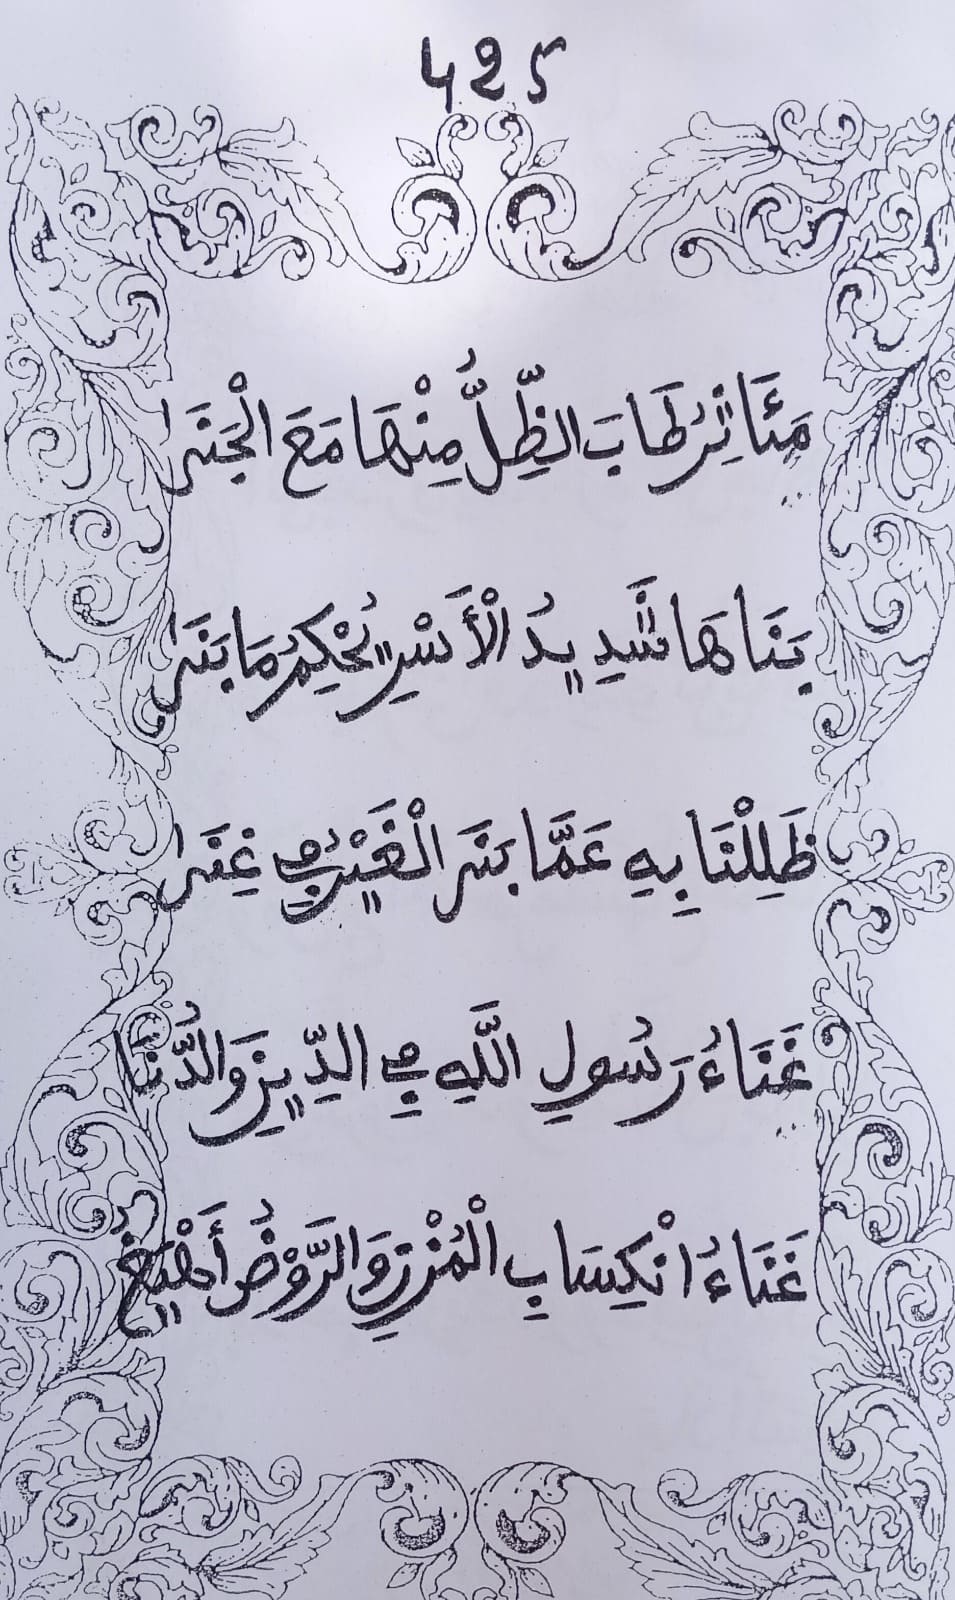 425
مَئَاثِرُ طَابَ الظِّلُّ مِنْهَا مَعَ الْجَنَى
بَنَاهَا شَدِيدُ الْأَسْرِ يُحْكِمُ مَا بَنَى
ظَلِلْنَا بِهِ عَمَّا بَنَى الْغَيْرُ فِي غِنَى
غَنَاءُ رَسُولِ اللَّهِ فِي الدِّينِ وَالدُّنَا
غَنَاءُ انْكِسَابِ الْمُزْنِ وَالرَّوْضُ أَهْيَغُ